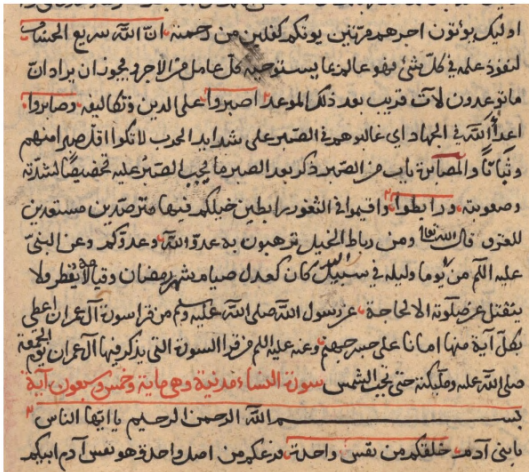 اوليك يؤتون اجرهم مرتين يوتكم كفلين من رحمته ان الله سريع الحساب
لنفوذ علمه في كل شئ فهو عالم بما يستوجبه كل عامل من الاجر ويجوز ان يراد ان
ما توعدون لآت قريب بعد ذلك الموعد اصبروا على الدين وتكاليفه وصابروا
اعداء الله في الجهاد اي غالبوهم في الصبر على شدايد الحرب لا تكونوا اقل صبرا منهم
وثباتا والمصابرة باب من الصبر ذكر بعد الصبر على ما يجب الصبر عليه تخصيصا لشدته
وصعوبته ورابطوا واقيموا في الثغور رابطين خيلكم فيها مترصدين مستعدين
للغزو قال الله تعا ومن رباط الخيل ترهبون به عدو الله وعدوكم وعن النبي
عليه اللم من يوما وليلة في سبيل الله كان كعدل صيام شهر رمضان وقيامه لا يفطر ولا
ينفتل عن صلوته الا لحاجة عن رسول الله صلى الله عليه وسلم من قرا سورة آل عمران اعطي
بكل آية منها امانا على جسر جهنم وعنه عليه اللم من قرا السورة التي يذكر فيها آل عمران يوم الجمعة
صلى الله عليه وملئكته حتى تحجب الشمس سورة النساء مدنية وهي ماية وخمس وسبعون آية
بسم الله الرحمن الرحيم يا ايها الناس
يا بني آدم خلقكم من نفس واحدة فرعكم من اصل واحد وهو نفس آدم ابيكم